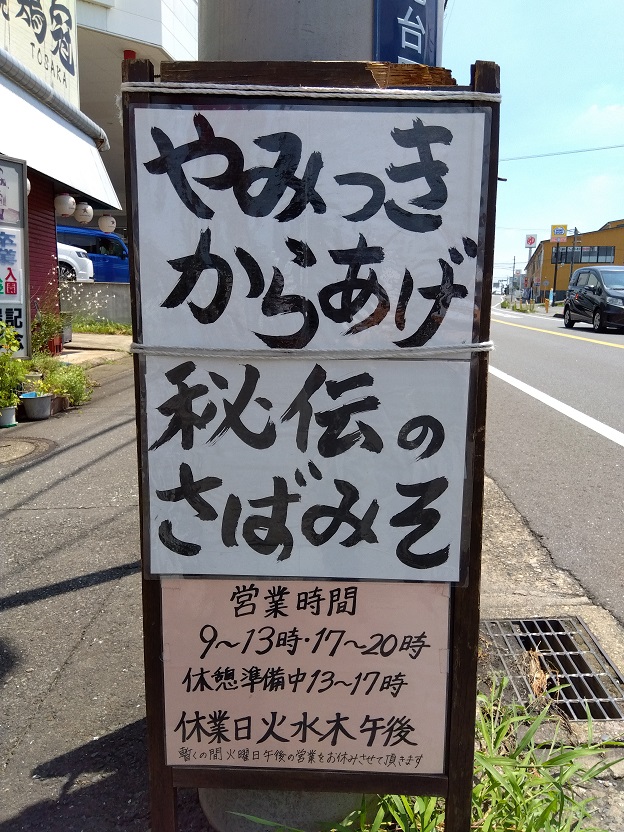 TOSAKA
やみつき
からあげ
秘伝の
さばみそ
営業時間
9〜13時・17〜20時
休憩準備中13〜17時
休業日火水木午後
暫くの間火曜日午後の営業をお休みさせて頂きます